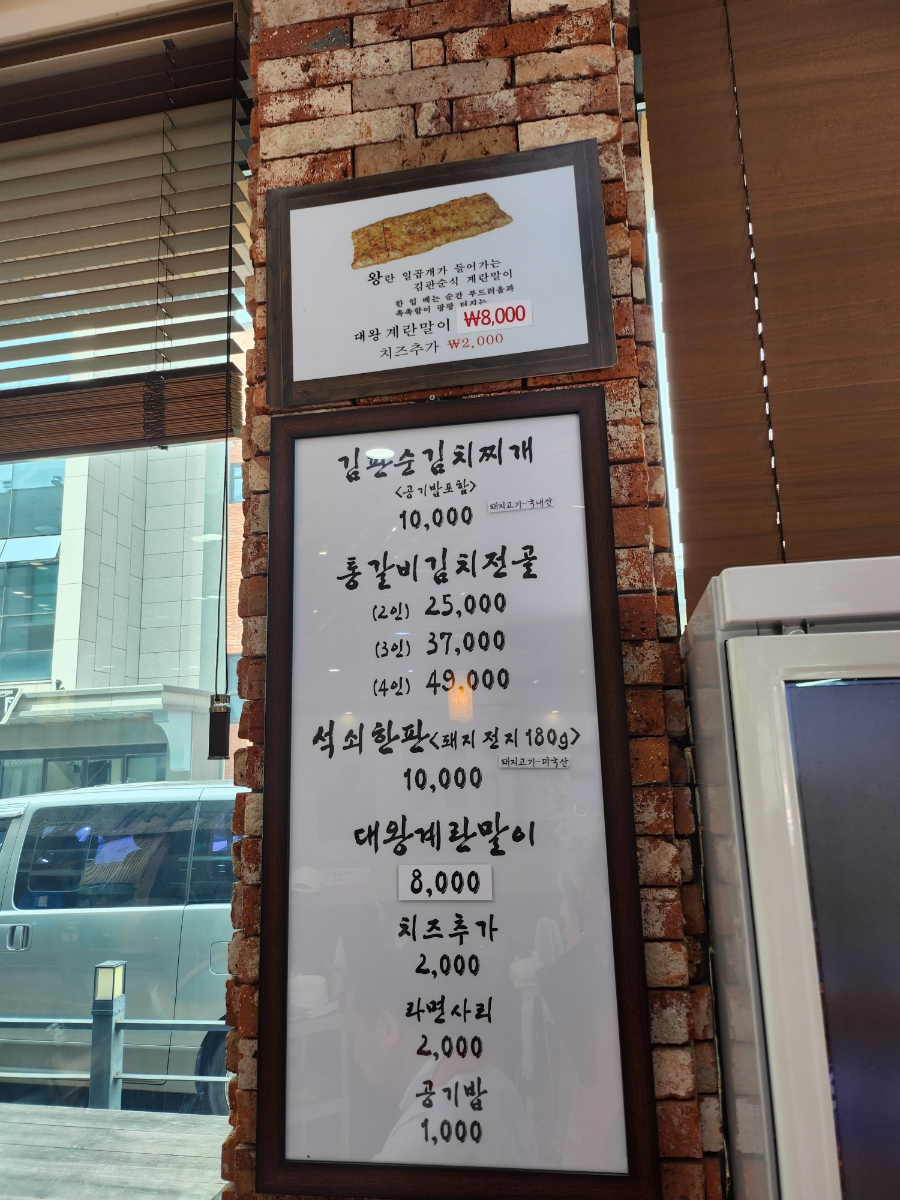 왕란 일곱개가 들어가는
김판순식 계란말이
한 입 베는 순간 부드러움과
촉촉함이 팡팡 터지는
대왕계란말이 ₩8,000
치즈추가 ₩2,000
김판순김치찌개
<공기밥포함>
10,000 돼지고기-국내산
통갈비김치전골
(2인) 25,000
(3인) 37,000
(4인) 49,000
석쇠한판<돼지전지180g>
돼지고기-미국산
10,000
대왕계란말이
8,000
치즈추가
2,000
라면사리
2,000
공기밥
1,000